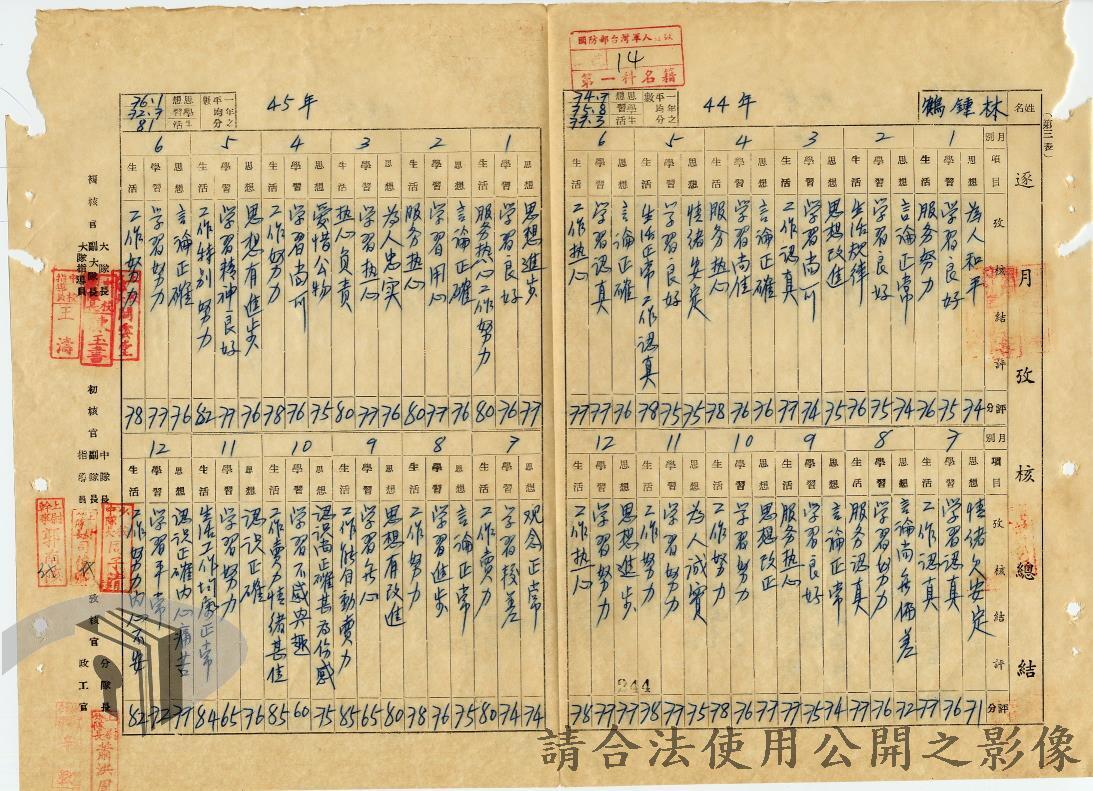 (第三表)
逐月攷核總結
姓名 林鍾鵷
44年
一年之平均分數 思想 74.7
學習 75.8
生活 77.3
國防部台灣軍人
14
第一科名籍
月別 項目 攷核結評 評分
1 思想 為人和平 74
學習 學習良好 75
生活 服务努力 76
2 思想 言論正常 74
學習 學習良好 75
生活 生活规律 76
3 思想 思想改進 75
學習 學習尚可 74
生活 工作認真 77
4 思想 言論正確 76
學習 學習尚佳 76
生活 服务热心 78
5 思想 情緒安定 75
學習 學習良好 75
生活 生活正常工作認真 78
6 思想 言論正確 76
學習 學習認真 77
生活 工作热心 77
月別 項目 攷核結評 評分
7 思想 情绪欠安定 71
學習 學習認真 76
生活 工作認真 77
8 思想 言論尚無偏差 72
學習 學習努力 76
生活 服务認真 77
9 思想 言論正常 74
學習 學習良好 75
生活 服务热心 77
10 思想 思想改正 77
學習 学習努力 76
生活 工作努力 78
11 思想 为人誠實 75
學習 學習努力 77
生活 工作努力 78
12 思想 思想進步 77
學習 學習努力 77
生活 工作热心 78
244
45年
一年之平均分數 思想 76.1
學習 72.7
生活 81
1 思想 思想進步 77
學習 學習良好 76
生活 服务热心工作努力 80
2 思想 言論正確 76
學習 學習用心 77
生活 服务热心 80
3 思想 為人忠實 76
學習 學習热心 77
生活 热心負責 80
4 思想 爱惜公物 75
學習 學習尚可 76
生活 工作努力 78
5 思想 思想有進步 76
學習 學習精神良好 77
生活 工作特别努力 82
6 思想 言論正確 76
學習 學習努力 77
生活 工作努力 78
7 思想 观念正常 74
學習 学習較差 74
生活 工作賣力 80
8 思想 言論正常 75
學習 學習進步 76
生活 工作努力 78
9 思想 思想有改進 80
學習 學習無心 65
生活 工作能自動賣力 85
10 思想 認识尚正確甚为伤感 75
學習 學習不感兴趣 60
生活 工作賣力情绪甚佳 85
11 思想 認识正確 76
學習 學習努力 65
生活 生活工作均属正常 84
12 思想 認识正確內心痛苦 77
學習 學習平常 72
生活 工作努力內心不安 82
複核官 大隊長
副大隊長
大隊指導員
初核官 中隊長
副隊長
指導員
攷核官 分隊長
政工官
王濤
請合法使用公開之影像